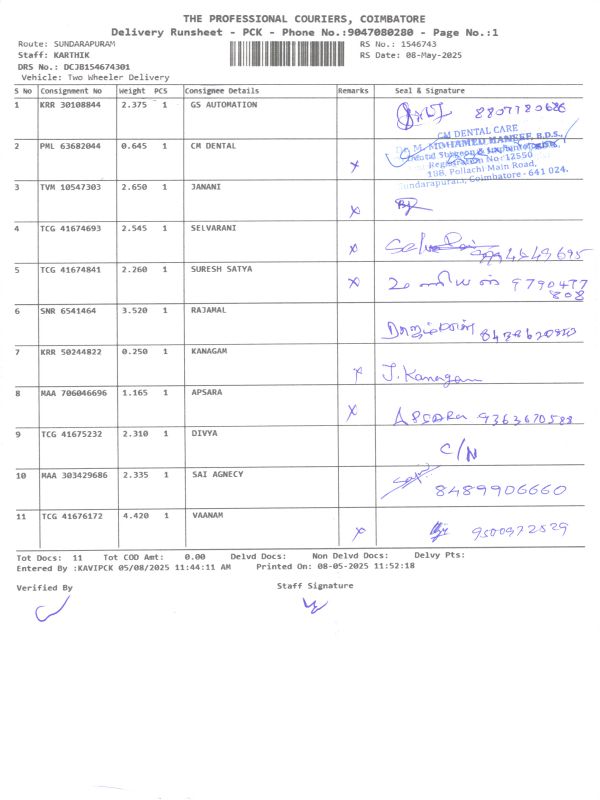 THE PROFESSIONAL COURIERS, COIMBATORE
Delivery Runsheet - PCK - Phone No.:9047080280 - Page No.:1
Route: SUNDARAPURAM RS No.: 1546743
Staff: KARTHIK RS Date: 08-May-2025
DRS No.: DCJB154674301
Vehicle: Two Wheeler Delivery
S No Consignment No Weight PCS Consignee Details Remarks Seal & Signature
1 KRR 30108844 2.375 1 GS AUTOMATION
2 PML 63682044 0.645 1 CM DENTAL x
CM DENTAL CARE
Dr. M. MOHAMED HANEEF, B.D.S.,
Dental Surgeon & Implantologist,
Registration No: 12550
188, Pollachi Main Road,
Sundarapuram, Coimbatore - 641 024.
3 TVM 10547303 2.650 1 JANANI x
4 TCG 41674693 2.545 1 SELVARANI x
5 TCG 41674841 2.260 1 SURESH SATYA x 9790477
808
6 SNR 6541464 3.520 1 RAJAMAL
7 KRR 50244822 0.250 1 KANAGAM x J. Kanagam
8 MAA 706046696 1.165 1 APSARA x APSARA 9363670588
9 TCG 41675232 2.310 1 DIVYA C/N
10 MAA 303429686 2.335 1 SAI AGNECY 8489906660
11 TCG 41676172 4.420 1 VAANAM x 9500972529
Tot Docs: 11 Tot COD Amt: 0.00 Delvd Docs: Non Delvd Docs: Delvy Pts:
Entered By :KAVIPCK 05/08/2025 11:44:11 AM Printed On: 08-05-2025 11:52:18
Verified By Staff Signature